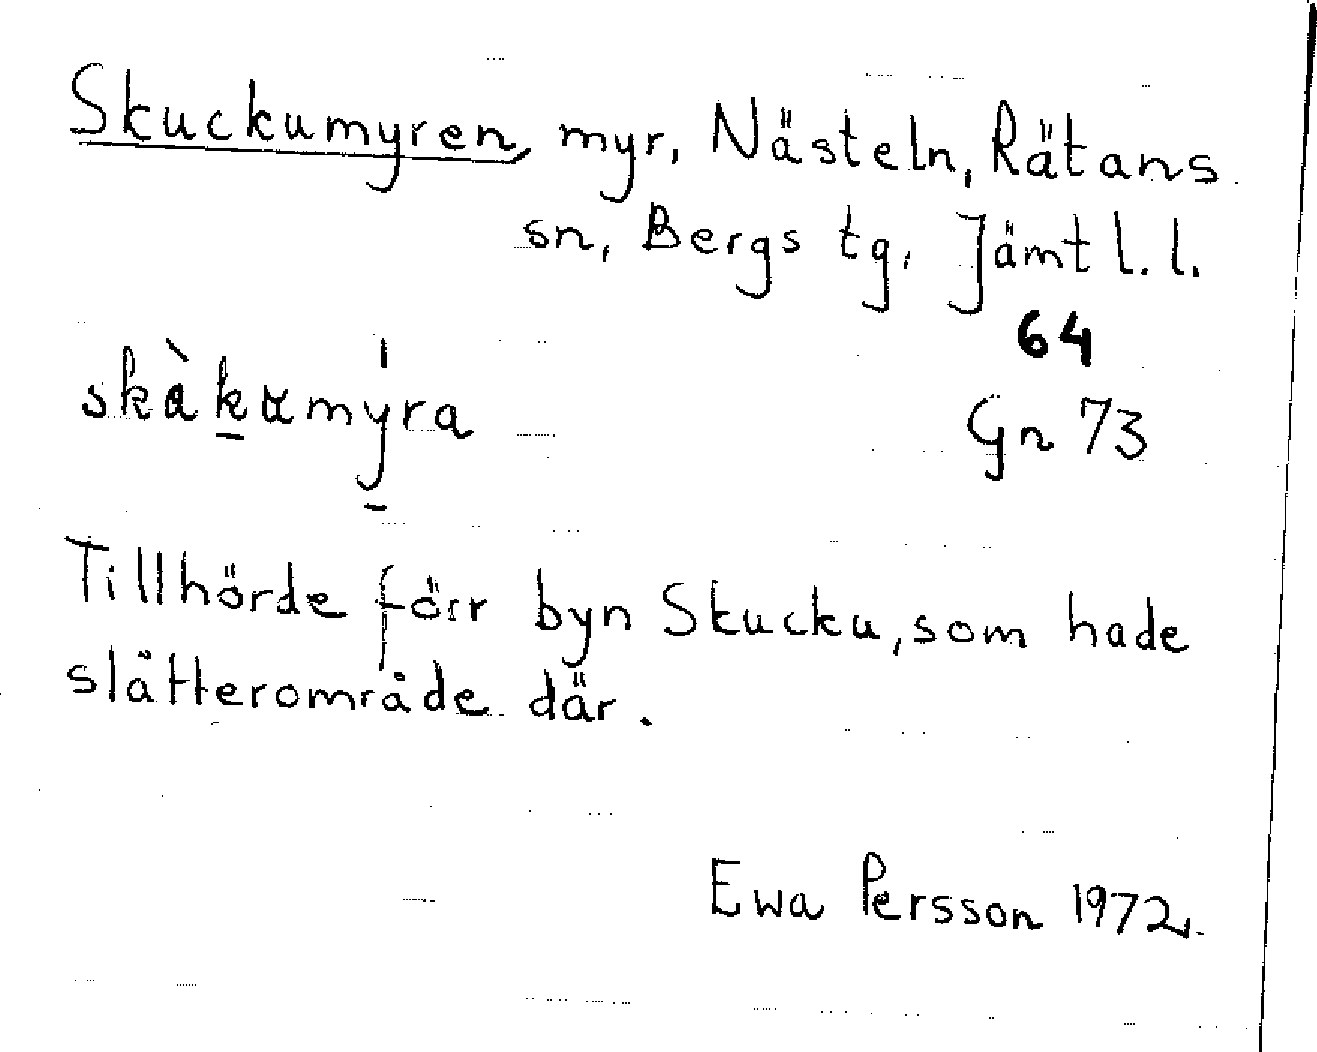 Skuckumyren, myr, Nästeln, Rätans
sn, Bergs tg, Jämtl. l.
64
skàkumýra
Gn 73
Tillhörde förr byn Skucku, som hade
slåtterområde där.
Ewa Persson 1972.